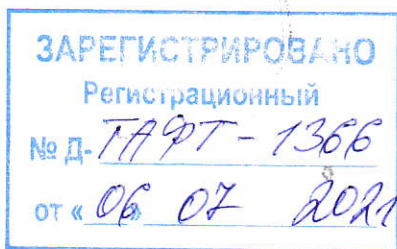 ЗАРЕГИСТРИРОВАНО
Регистрационный
№ Д- ТАФТ-1366
от « 06 » 07 2021